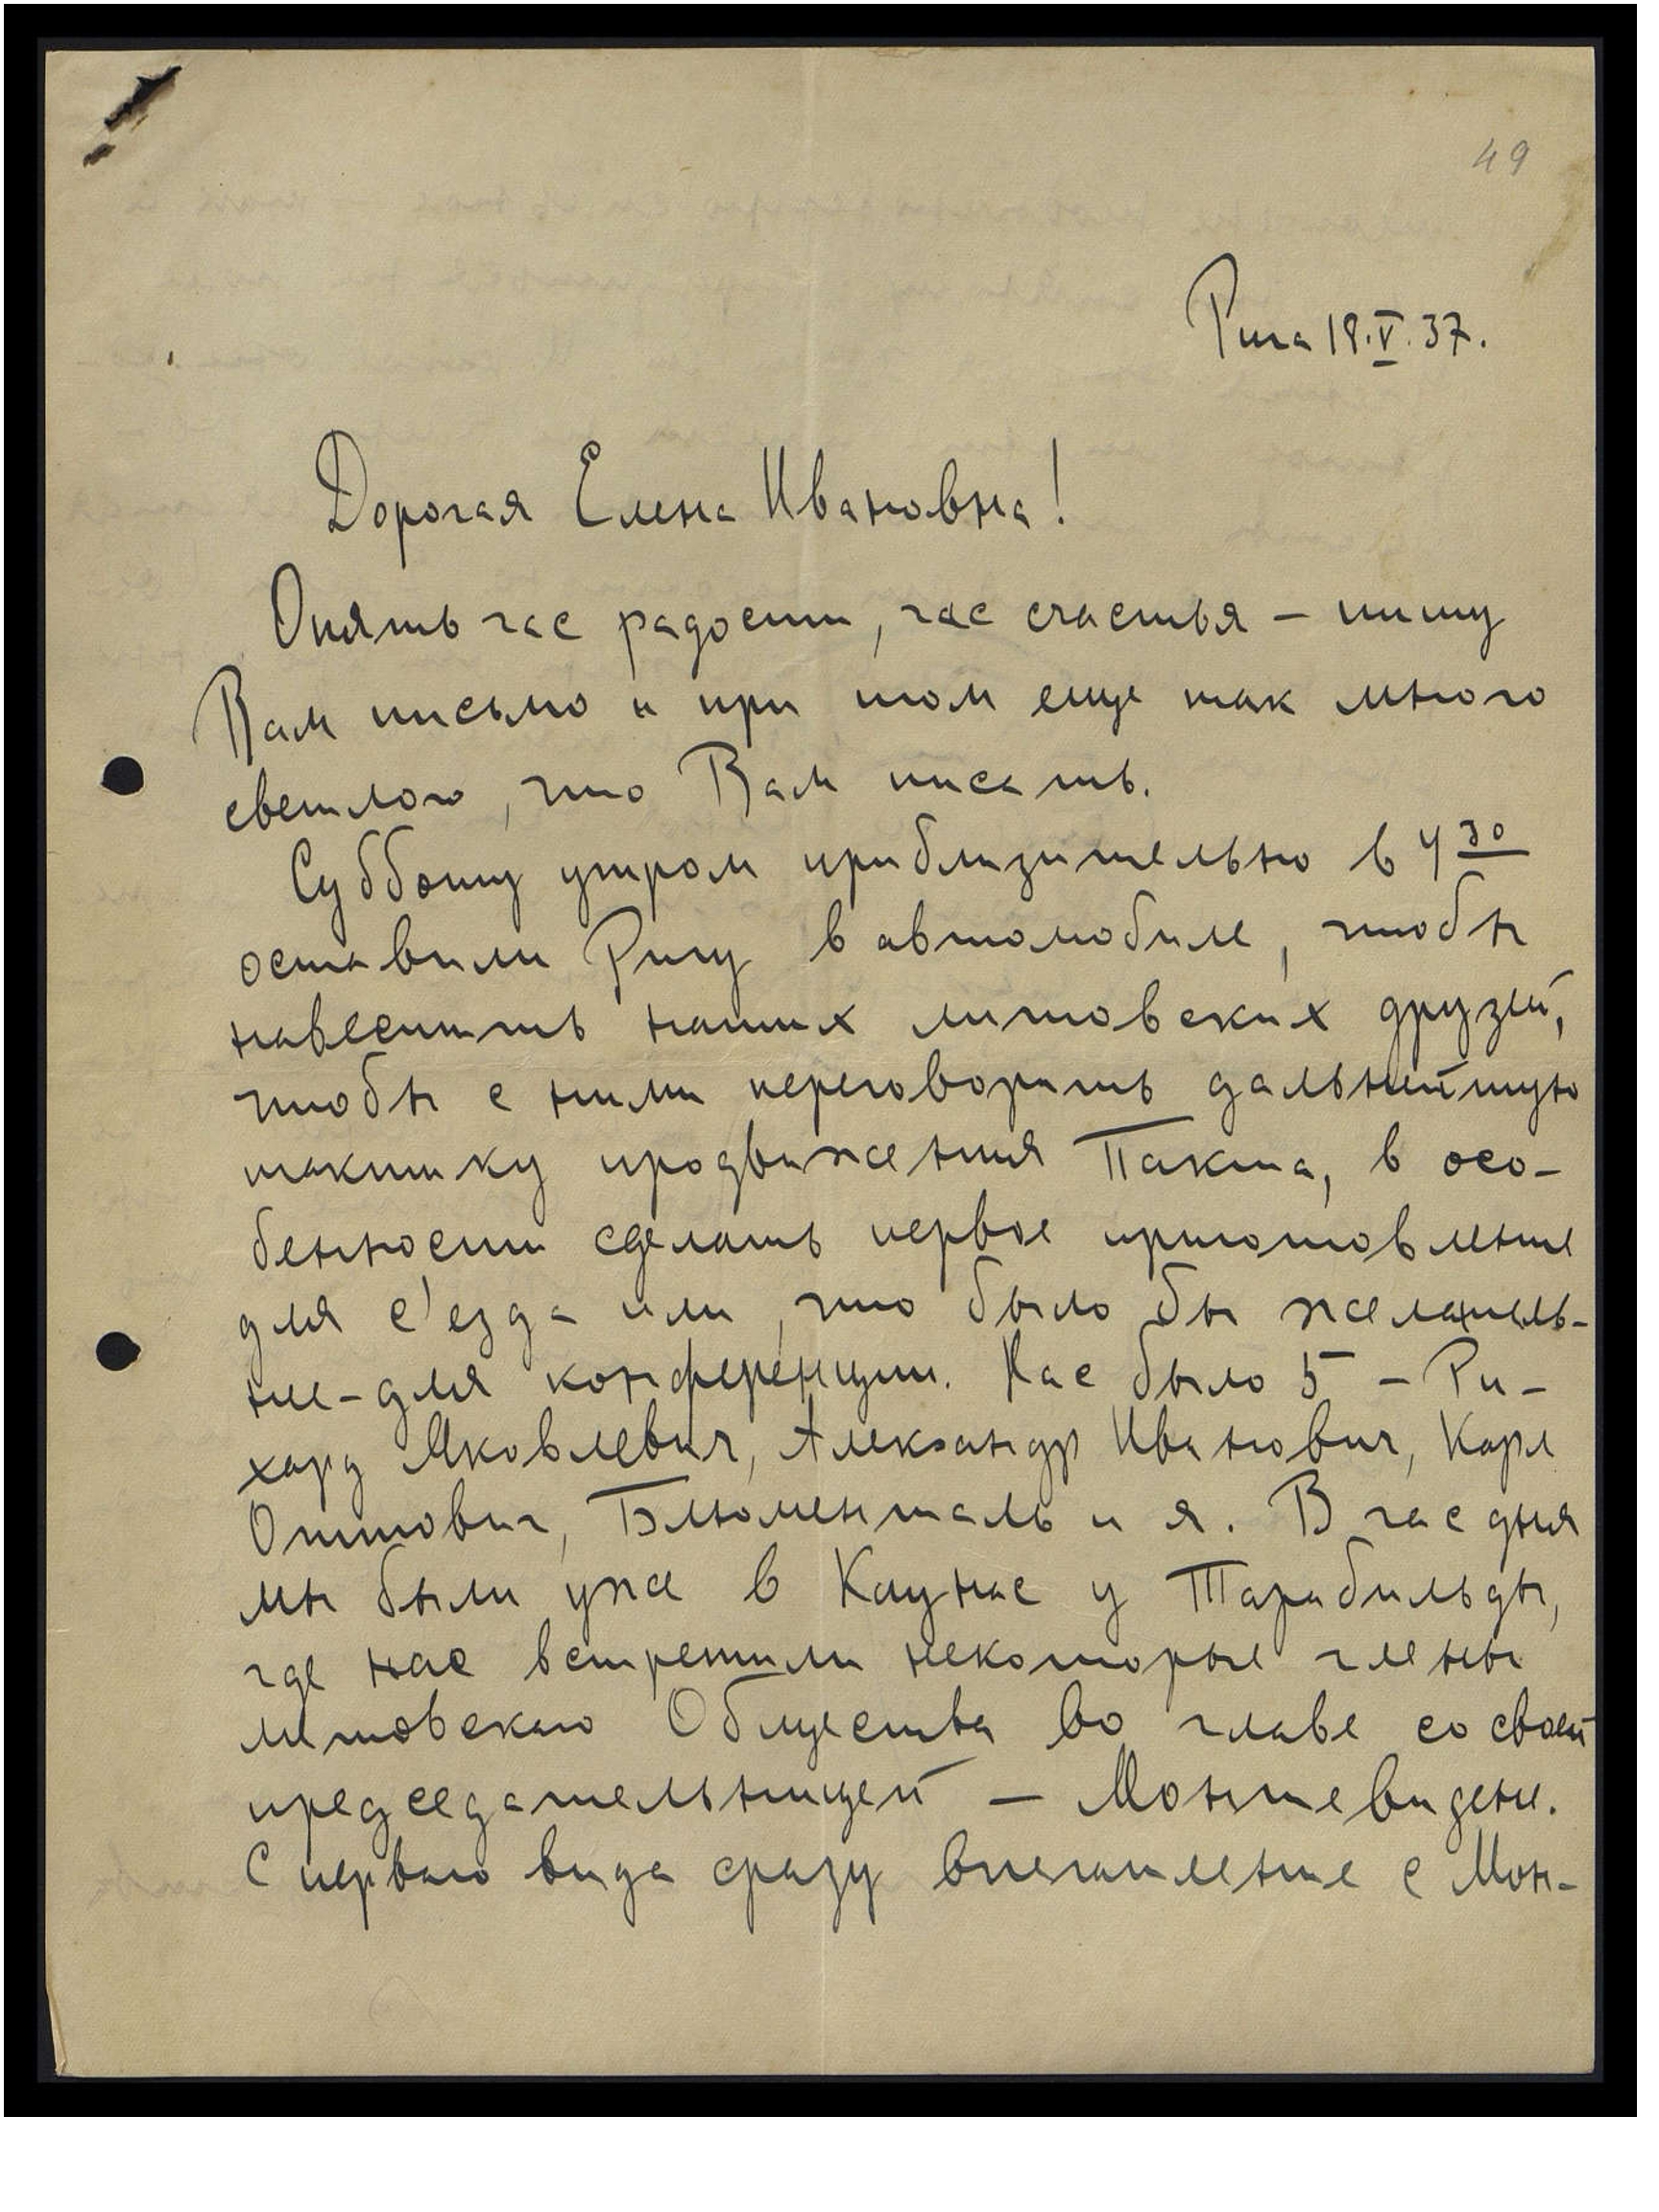 49
Рига 18.V.37.
Дорогая Елена Ивановна!
Опять час радости, час счастья – пишу
Вам письмо и при том еще так много
светлого, что Вам писать.
Субботу утром приблизительно в 4 30
оставили Ригу в автомобиле, чтобы
навестить наших литовских друзей,
чтобы с ними переговорить дальнейшую
тактику продвижения Пакта, в осо-
бенности сделать первое приготовление
для с'езда или, что было бы желатель-
нее – для конференции. Нас было 5 – Ри-
хард Яковлевич, Александр Иванович, Карл
Оттович, Блюменталь и я. В час дня
мы были уже в Каунас у Тарабильды,
где нас встретили некоторые члены
литовскаго Общества во главе со своей
председательницей – Монтевидене.
С перваго вида сразу впечатление с Мон-